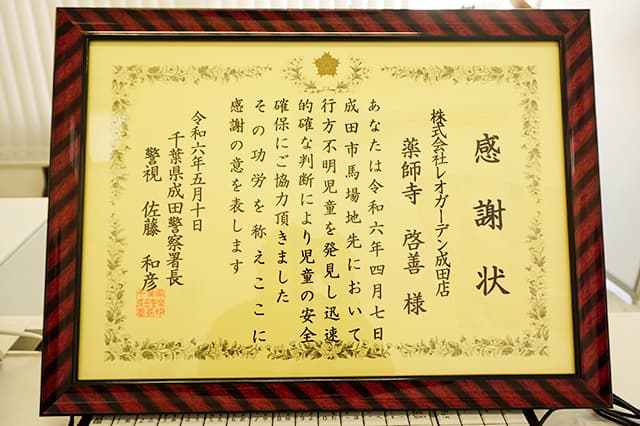 感謝状
株式会社レオガーデン成田店
薬師寺 啓善 様
あなたは令和六年四月七日
成田市馬場地先において
行方不明児童を発見し迅速
的確な判断により児童の安全
確保にご協力頂きました
その功労を称えここに
感謝の意を表します
令和六年五月十日
千葉県成田警察署長
警視 佐藤 和彦